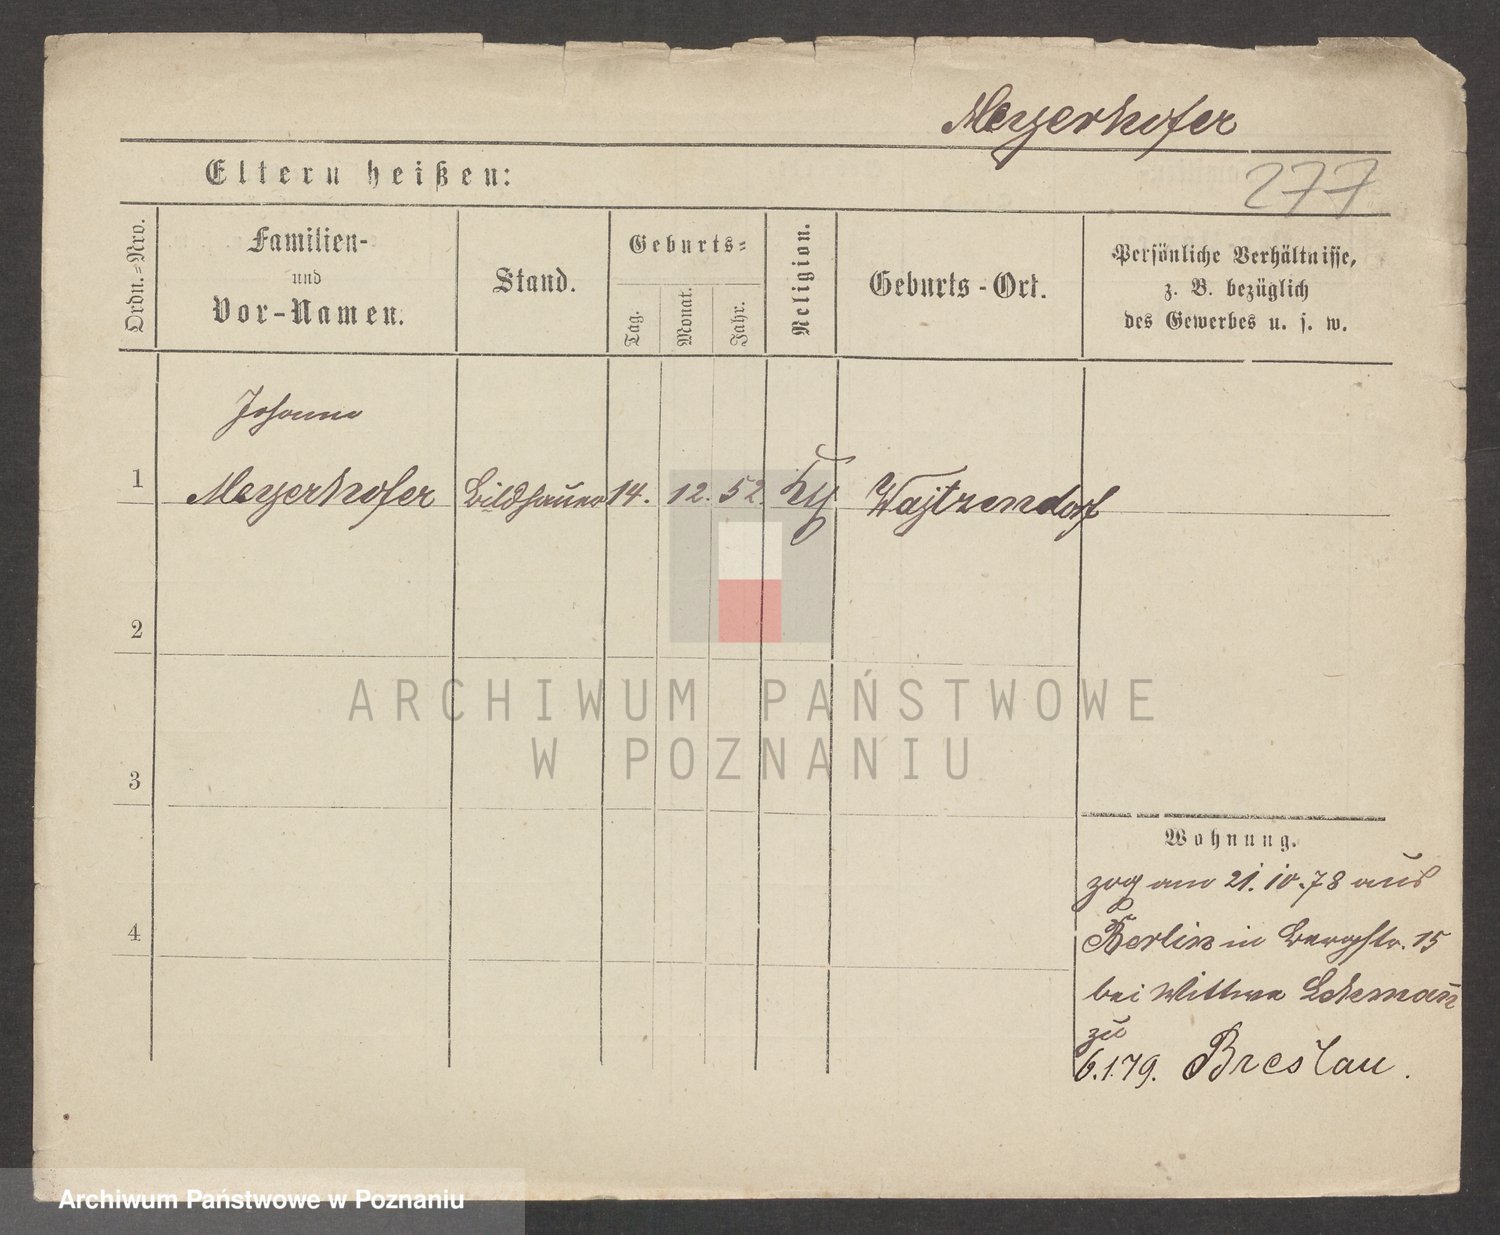 Meyerhofer
277
Eltern heißen:
Ordn.-Nro.
Familien-
und
Vor-Namen.
Stand.
Geburts-
Tag.
Monat.
Jahr.
Religion.
Geburts-Ort.
Persönliche Verhältnisse,
z. B. bezüglich
des Gewerbes u. s. w.
Johann
1 Meyerhofer Bildhauer 14. 12. 52. Wajtzendorf
2
ARCHIWUM PAŃSTWOWE
W POZNANIU
3
Wohnung.
zog am 21.10.78 aus
4
Berlin in Bergstr. 15
bei Wittwe
zu
6.1.79. Breslau.
Archiwum Państwowe w Poznaniu